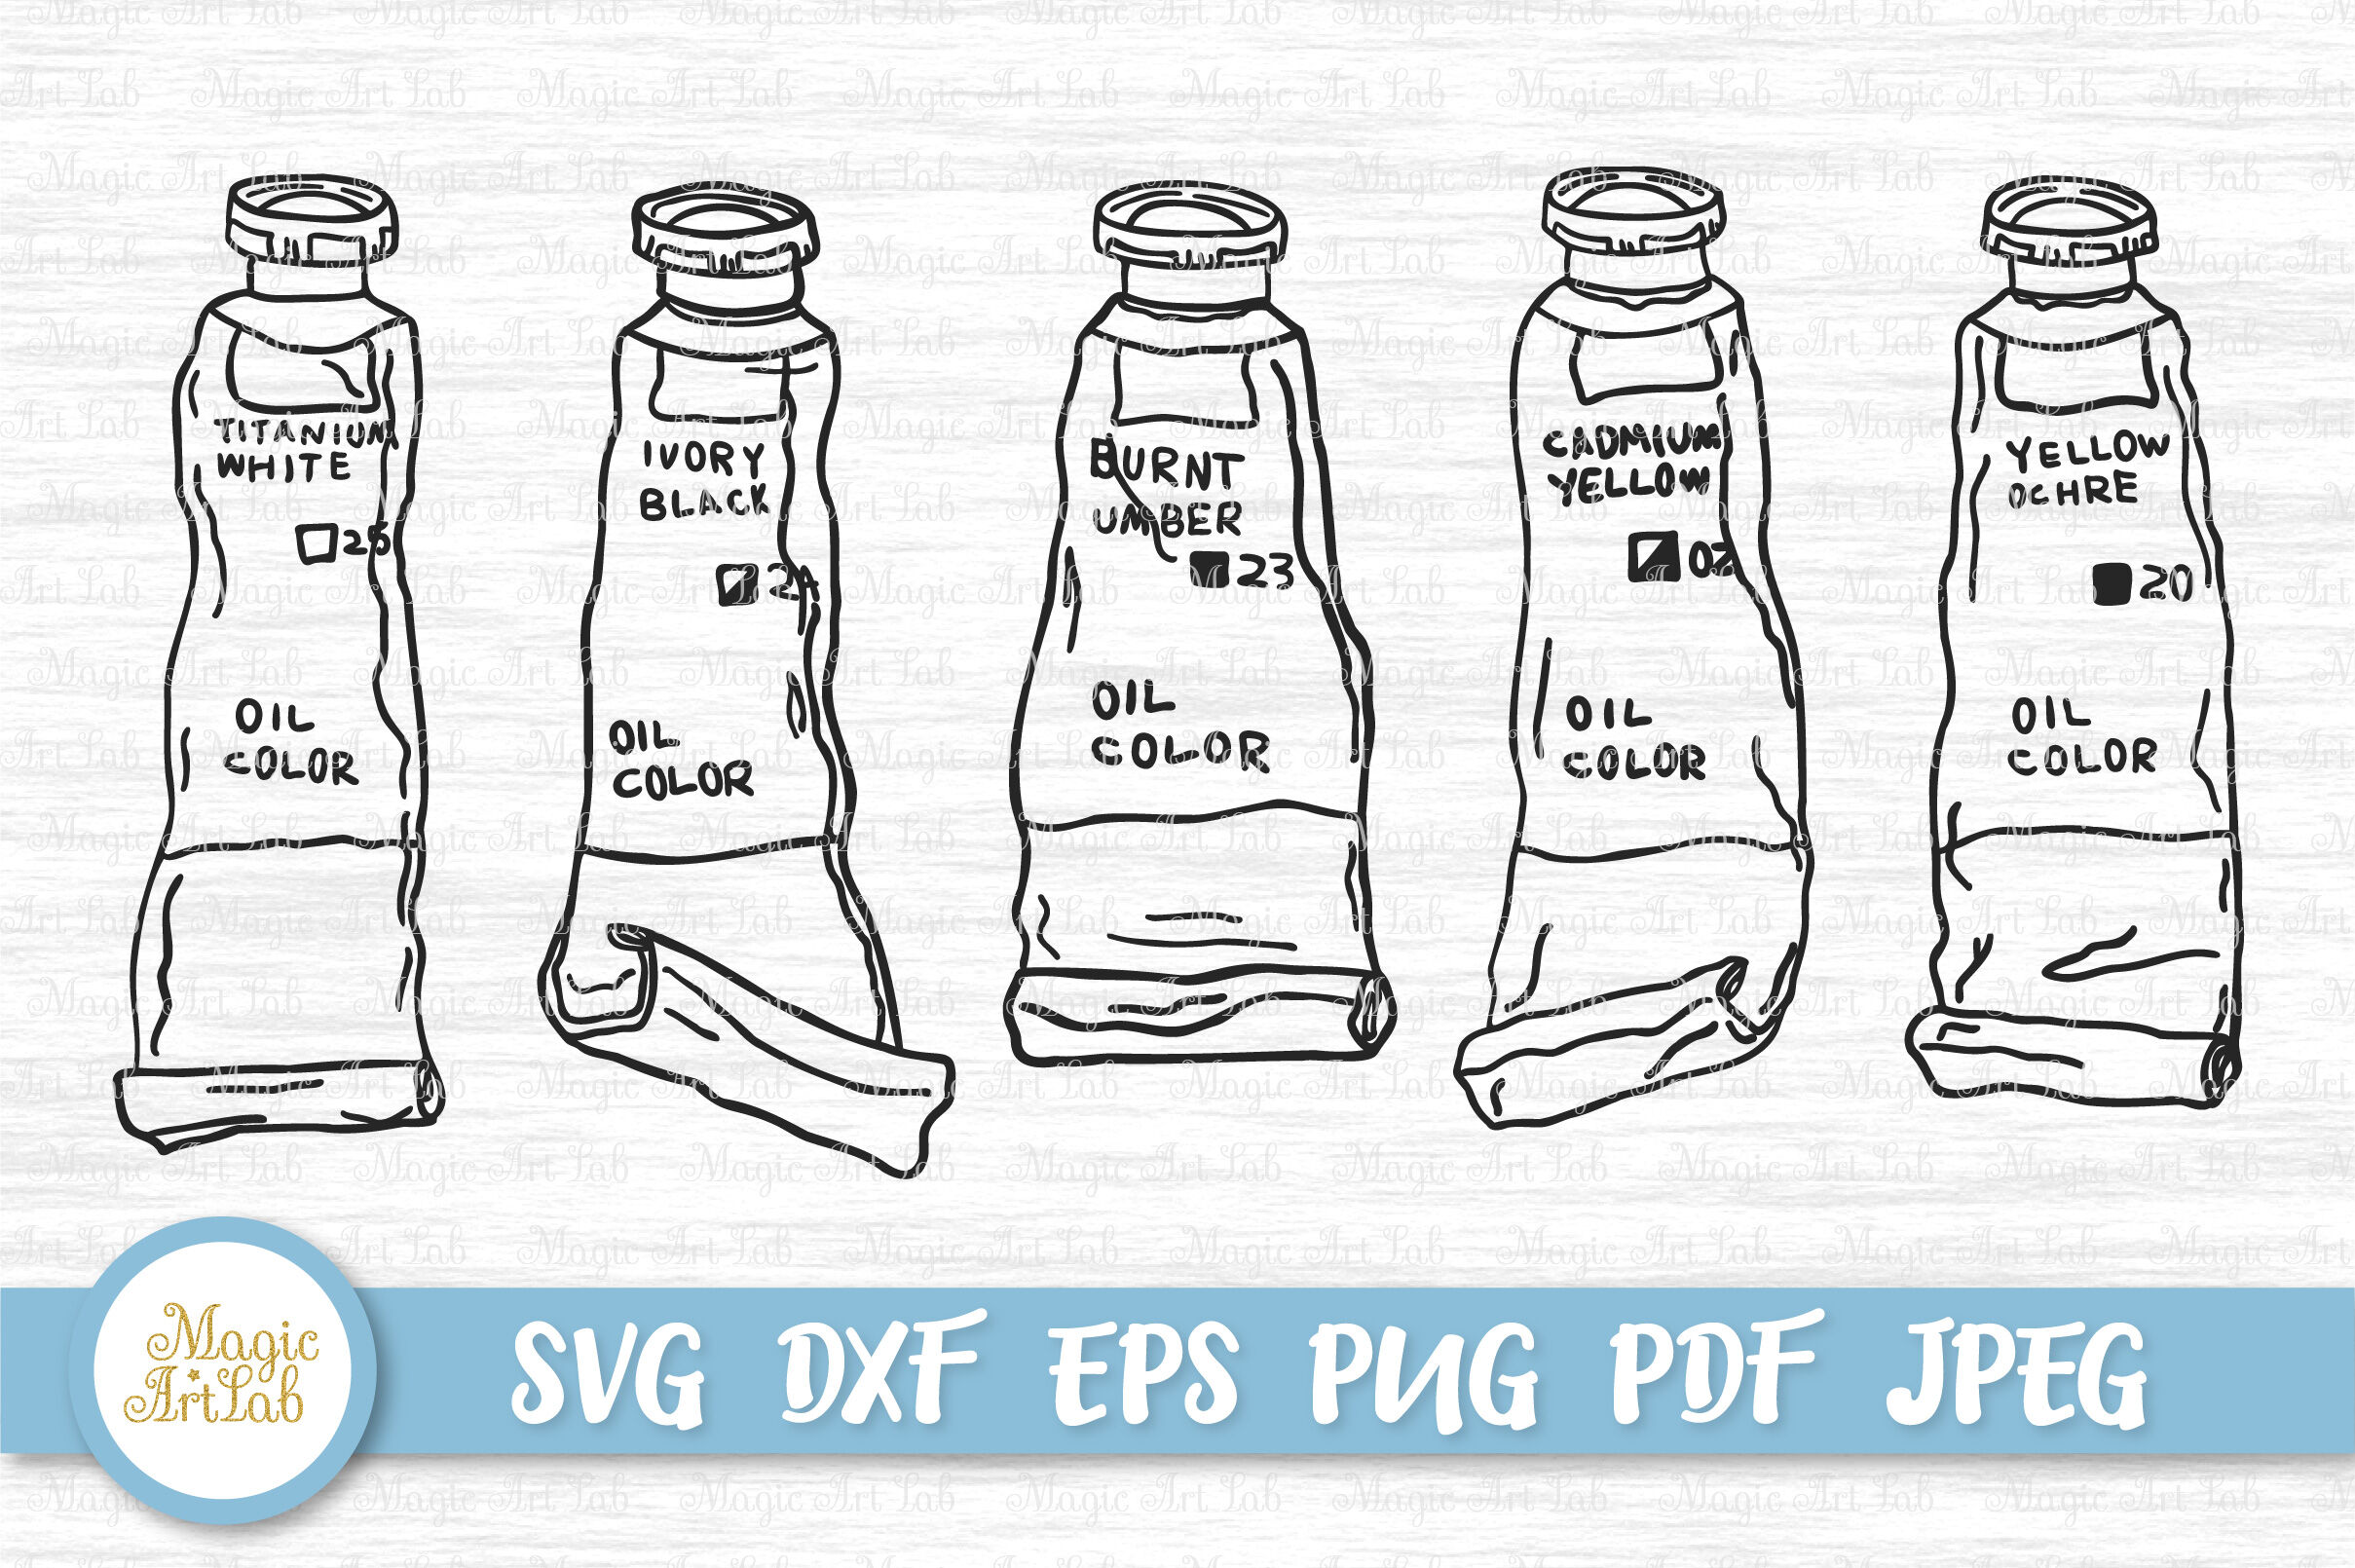 TITANIUM
WHITE
25
OIL
COLOR
IVORY
BLACK
OIL
COLOR
BURNT
UMBER
23
OIL
COLOR
CADMIUM
YELLOW
OIL
COLOR
YELLOW
OCHRE
20
OIL
COLOR
Magic
ArtLab
SVG DXF EPS PNG PDF JPEG
Magic Art Lab